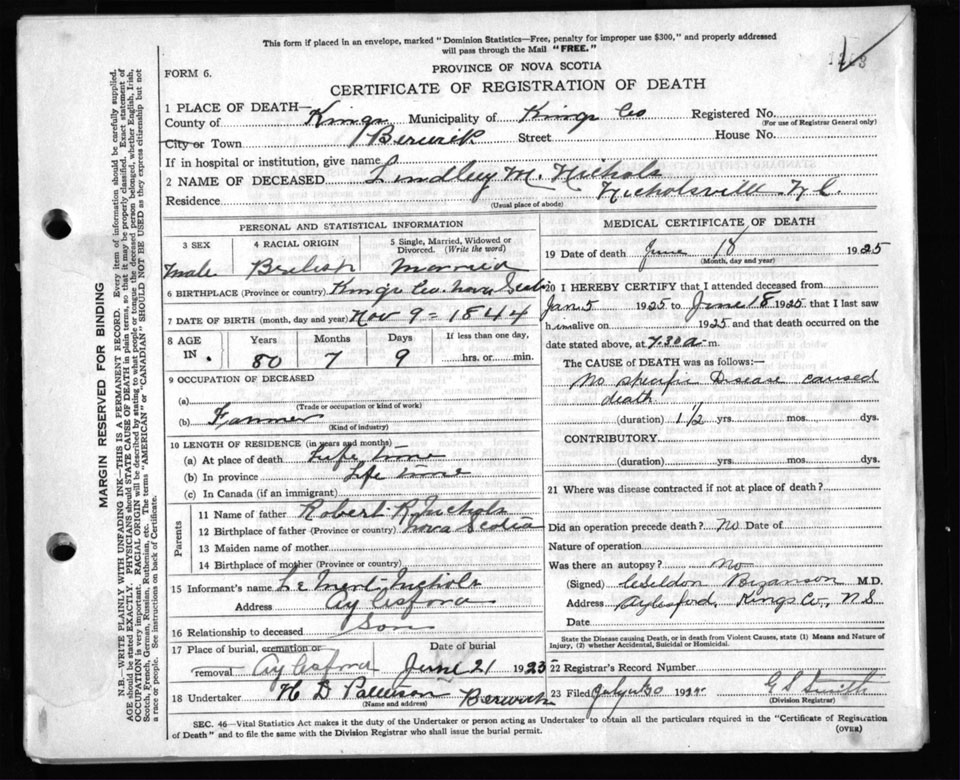 This form if placed in an envelope, marked "Dominion Statistics—Free, penalty for improper use $300," and properly addressed
will pass through the Mail "FREE."
PROVINCE OF NOVA SCOTIA
FORM 6.
CERTIFICATE OF REGISTRATION OF DEATH
1 PLACE OF DEATH—
County of Kings Municipality of Kings Co Registered No.
(For use of Registrar General only)
City or Town Berwick Street House No.
If in hospital or institution, give name
2 NAME OF DECEASED Lindley M. Nichols
Residence Nicholsvill
(Usual place of abode)
PERSONAL AND STATISTICAL INFORMATION
3 SEX 4 RACIAL ORIGIN 5 Single, Married, Widowed or
Divorced. (Write the word)
Male British Married
6 BIRTHPLACE (Province or country) Kings Co. Nova Scotia
7 DATE OF BIRTH (month, day and year) Nov 9 = 1844
8 AGE Years Months Days If less than one day,
IN. 80 7 9 hrs. or min.
9 OCCUPATION OF DECEASED
(a)
(Trade or occupation or kind of work)
(b) Farmer
(Kind of industry)
10 LENGTH OF RESIDENCE (in years and months)
(a) At place of death Life time
(b) In province Life time
(c) In Canada (if an immigrant)
Parents
11 Name of father Robert R Nichols
12 Birthplace of father (Province or country) Nova Scotia
13 Maiden name of mother
14 Birthplace of mother (Province or country)
15 Informant's name Nichols
Address Aylesford
16 Relationship to deceased Son
17 Place of burial, cremation or Date of burial
removal Aylesford June 21 1925
18 Undertaker H D Berwick
(Name and address)
MEDICAL CERTIFICATE OF DEATH
19 Date of death June 18 1925
(Month, day and year)
20 I HEREBY CERTIFY that I attended deceased from
Jan 5 1925 to June 18 1925, that I last saw
h im alive on 1925 and that death occurred on
date stated above, at 7.30 a m.
The CAUSE of DEATH was as follows:
No specific Disease caused
death
(duration) 1½ yrs. mos. dys.
CONTRIBUTORY
(duration) yrs. mos. dys.
21 Where was disease contracted if not at place of death?
Did an operation precede death? No Date of
Nature of operation
Was there an autopsy? No
(Signed) Weldon Bezanson M.D.
Address Aylesford, Kings Co, N.S
Date
State the Disease causing Death, or in death from Violent Causes, state (1) Means and Nature of
Injury, (2) whether Accidental, Suicidal or Homicidal.
22 Registrar's Record Number
23 Filed July 30 192 G S Smith
(Division Registrar)
SEC. 46—Vital Statistics Act makes it the duty of the Undertaker or person acting as Undertaker to obtain all the particulars required in the "Certificate of Registration
of Death" and to file the same with the Division Registrar who shall issue the burial permit.
(OVER)
MARGIN RESERVED FOR BINDING
N.B.—WRITE PLAINLY WITH UNFADING INK—THIS IS A PERMANENT RECORD. Every item of information should be carefully supplied.
AGE should be stated EXACTLY. PHYSICIANS should STATE CAUSE OF DEATH in plain terms, so that it may be properly classified. Exact statement of
OCCUPATION is very important. RACIAL ORIGIN will be described by stating to what people or tongue the deceased person belonged, whether English, Irish,
Scotch, French, German, Russian, Ruthenian, etc. The terms "AMERICAN" or "CANADIAN" SHOULD NOT BE USED as they express citizenship but not
a race or people. See instructions on back of Certificate.